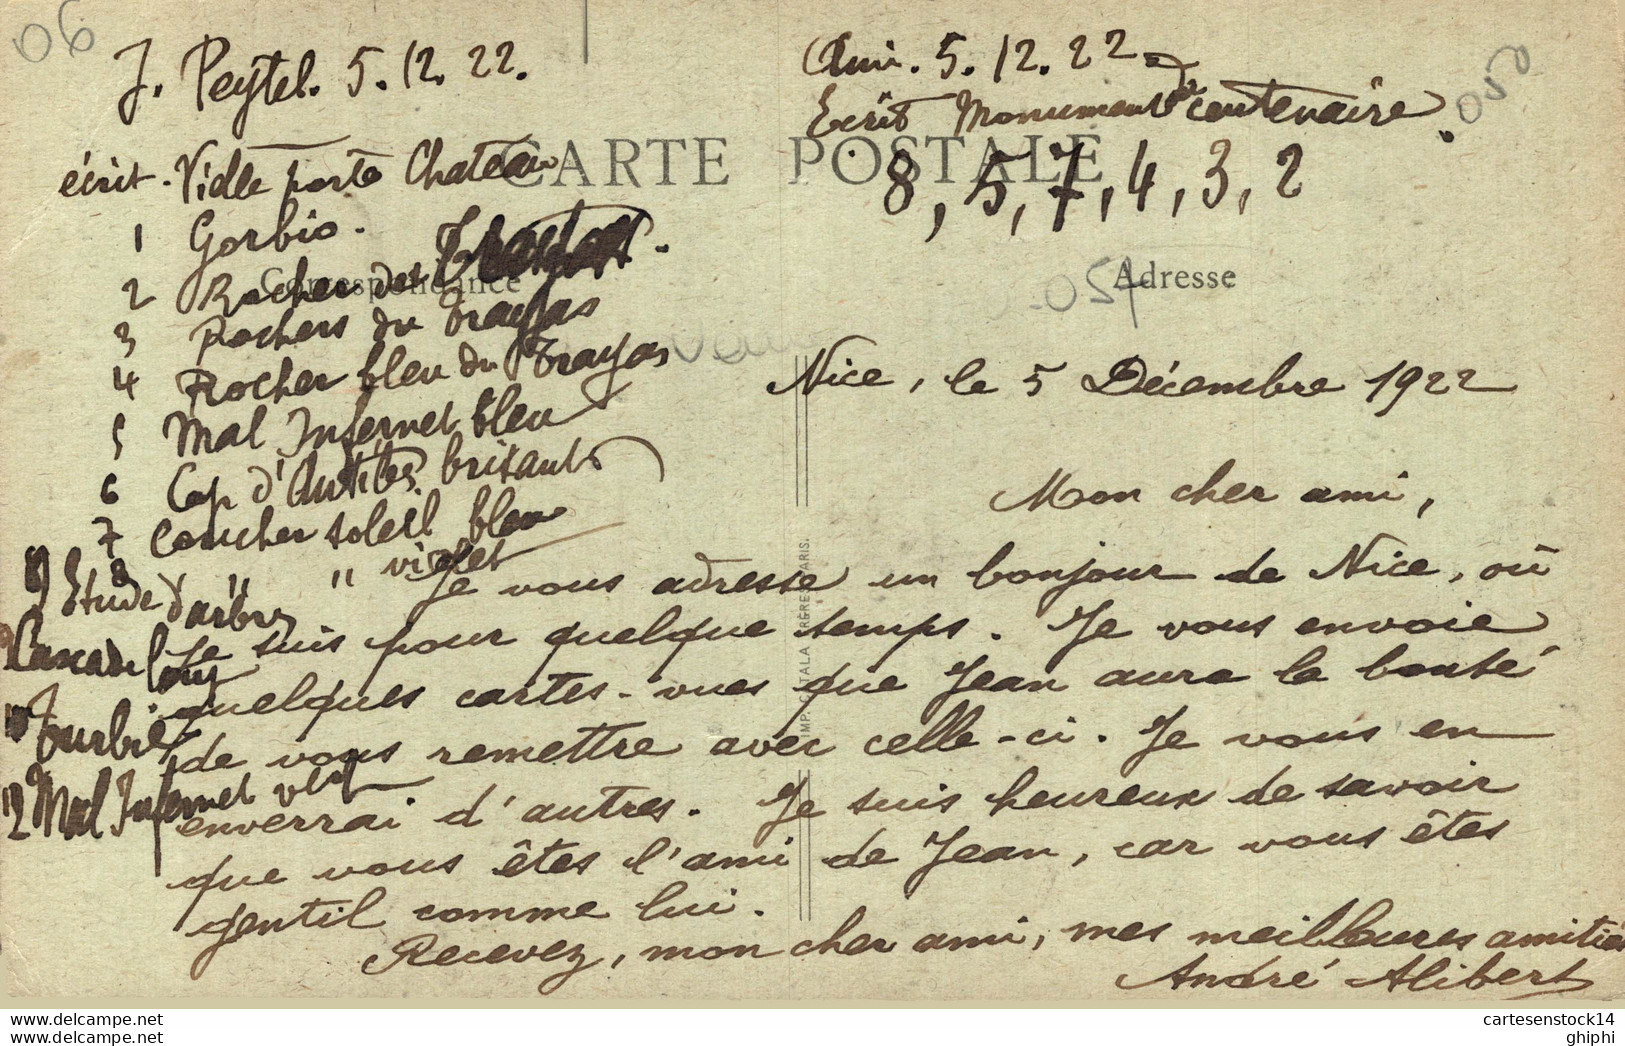 06
J. Peytel. 5.12.22.
écrit. Vielle porte Chateau
1 Gorbio.
2 Rocher des
3 Rochers du Trayas
4 Rocher bleu du Trayas
5 Mal Infernet bleu
6 Cap d'Antibes brisants
7 Coucher soleil bleu
8 " " violet
9 Etude d'arbres
Cascade Loup
Turbie
12 Mal Infernet
Ami. 5.12.22
Ecrit Monument du centenaire.
8, 5, 7, 4, 3, 2
CARTE POSTALE
Correspondance
Adresse
Nice, le 5 Décembre 1922
Mon cher ami,
Je vous adresse un bonjour de Nice, où
je suis pour quelque temps. Je vous envoie
quelques cartes-vues que Jean aura la bonté
de vous remettre avec celle-ci. Je vous en
enverrai d'autres. Je suis heureux de savoir
que vous êtes l'ami de Jean, car vous êtes
gentil comme lui.
Recevez, mon cher ami, mes meilleures amitiés
André Alibert
www.delcampe.net
cartesenstock14
www.delcampe.net
ghiphi